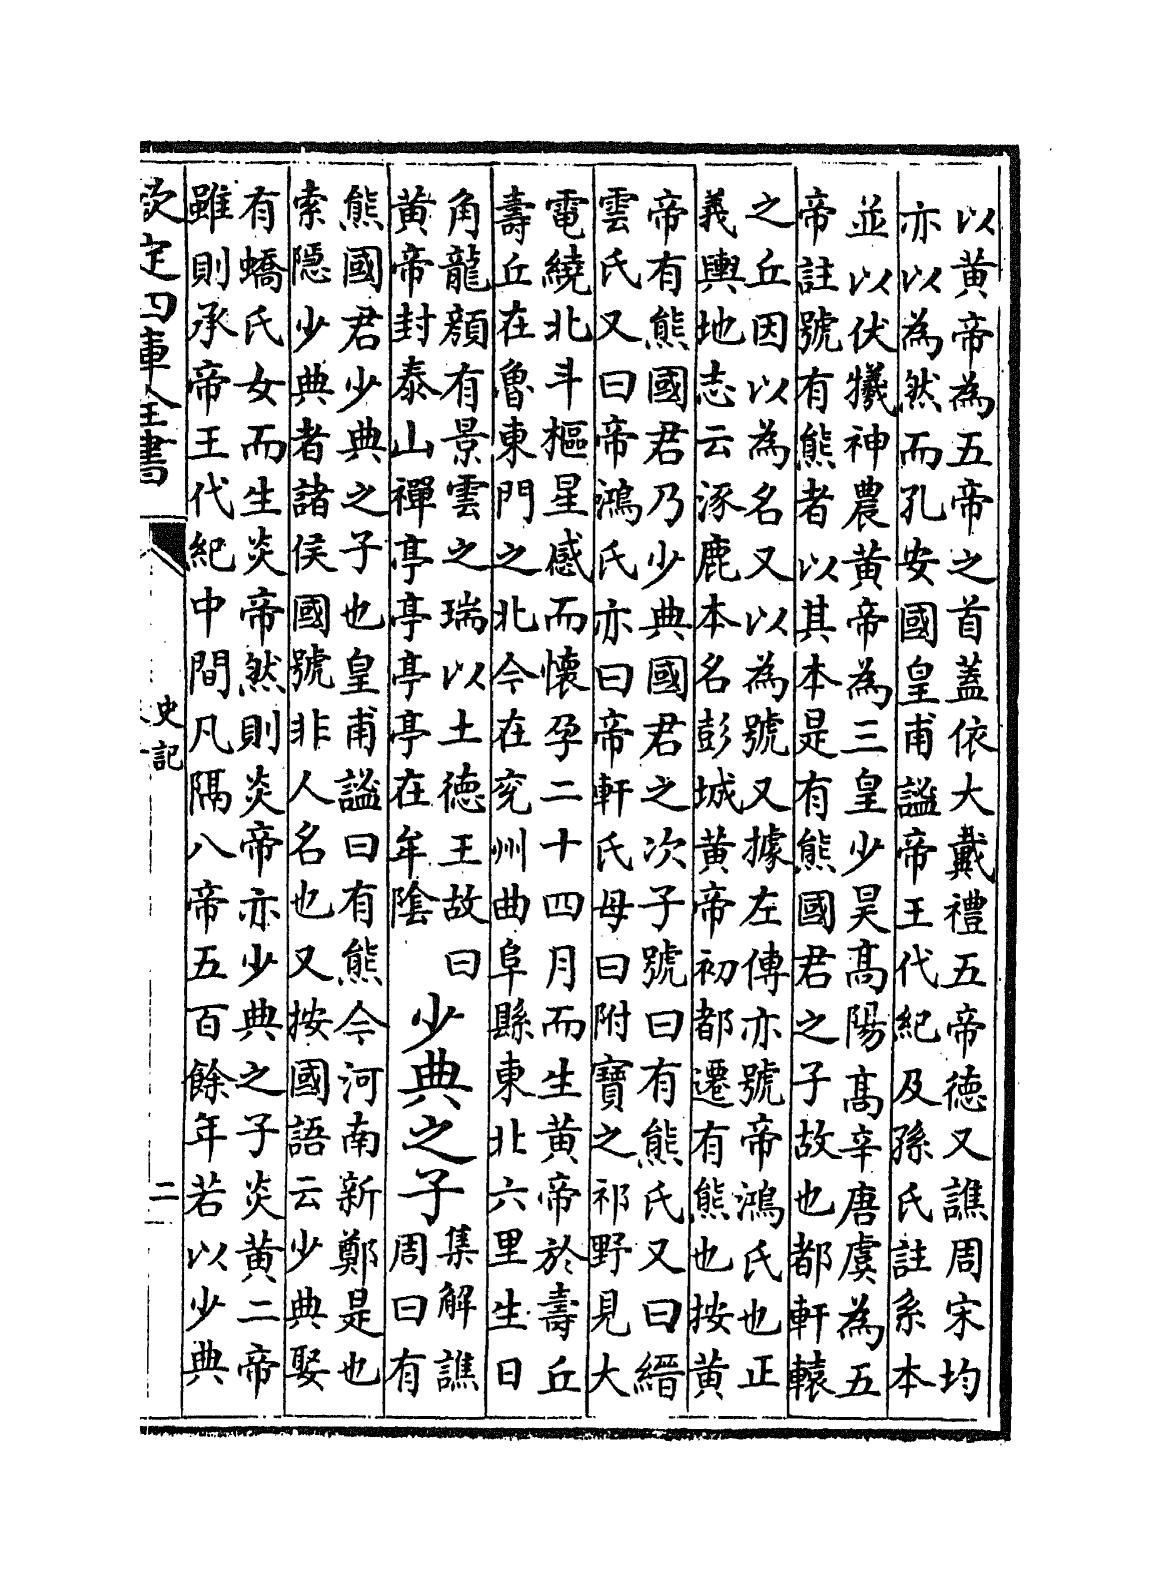 以黄帝為五帝之首蓋依大戴禮五帝徳又譙周宋均
亦以為然而孔安國皇甫謐帝王代紀及孫氏註系本
並以伏犧神農黄帝為三皇少昊髙陽髙辛唐虞為五
帝註號有熊者以其本是有熊國君之子故也都軒轅
之丘因以為名又以為號又據左傳亦號帝鴻氏也正
義輿地志云涿鹿本名彭城黄帝初都遷有熊也按黄
帝有熊國君乃少典國君之次子號曰有熊氏又曰縉
雲氏又曰帝鴻氏亦曰帝軒氏母曰附寶之祁野見大
電繞北斗樞星感而懐孕二十四月而生黄帝於壽丘
壽丘在魯東門之北今在兖州曲阜縣東北六里生日
角龍顔有景雲之瑞以土徳王故曰
黄帝封泰山禪亭亭亭亭在牟隂
少典之子
集解譙
周曰有
熊國君少典之子也皇甫謐曰有熊今河南新鄭是也
索隠少典者諸侯國號非人名也又按國語云少典娶
有蟜氏女而生炎帝然則炎帝亦少典之子炎黄二帝
雖則承帝王代紀中間凡隔八帝五百餘年若以少典
欽定四庫全書
史記
二